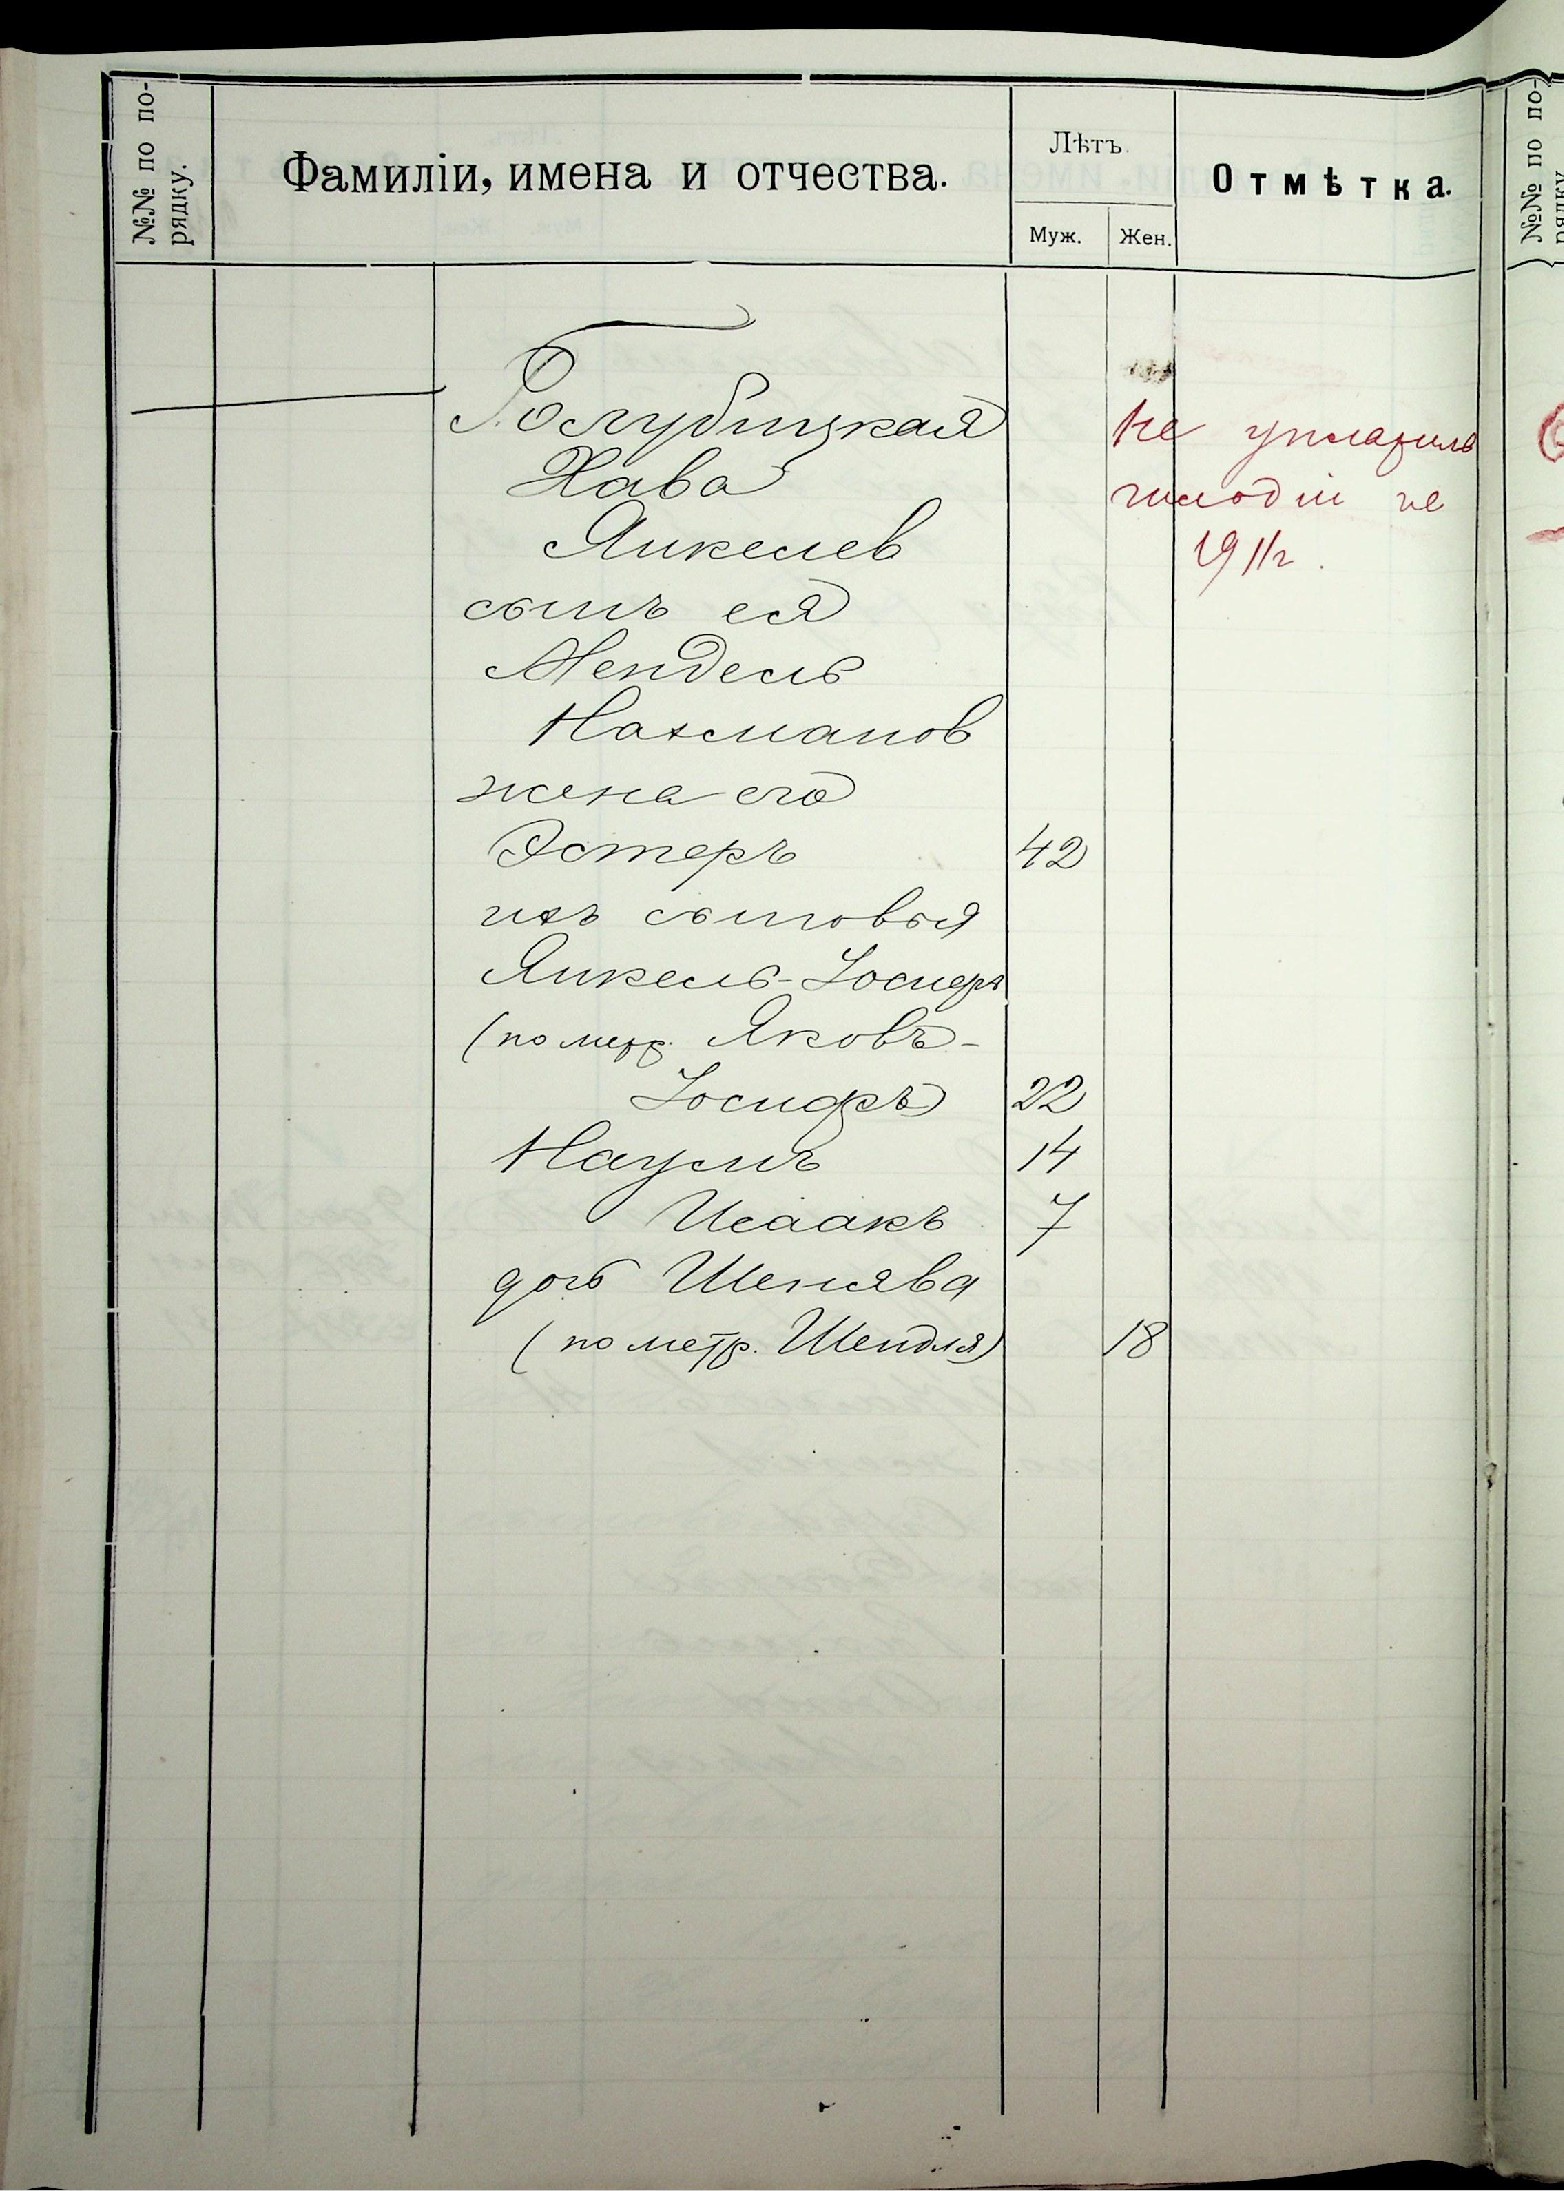 №№ по по-
рядку.
Фамиліи, имена и отчества.
Лѣтъ.
Муж.
Жен.
Отмѣтка.
№№ по по-
рядку
Голубицкая
Хава
Янкелев
сынъ ея
Мендель
Нахманов
жена его
Эстеръ 42
ихъ сыновья
Янкель-Іосифъ
(по метр. Яковъ-
Іосифъ) 22
Наумъ 14
Исаакъ 7
дочь Шенява
(по метр. Шендля) 18
Не
1911г.